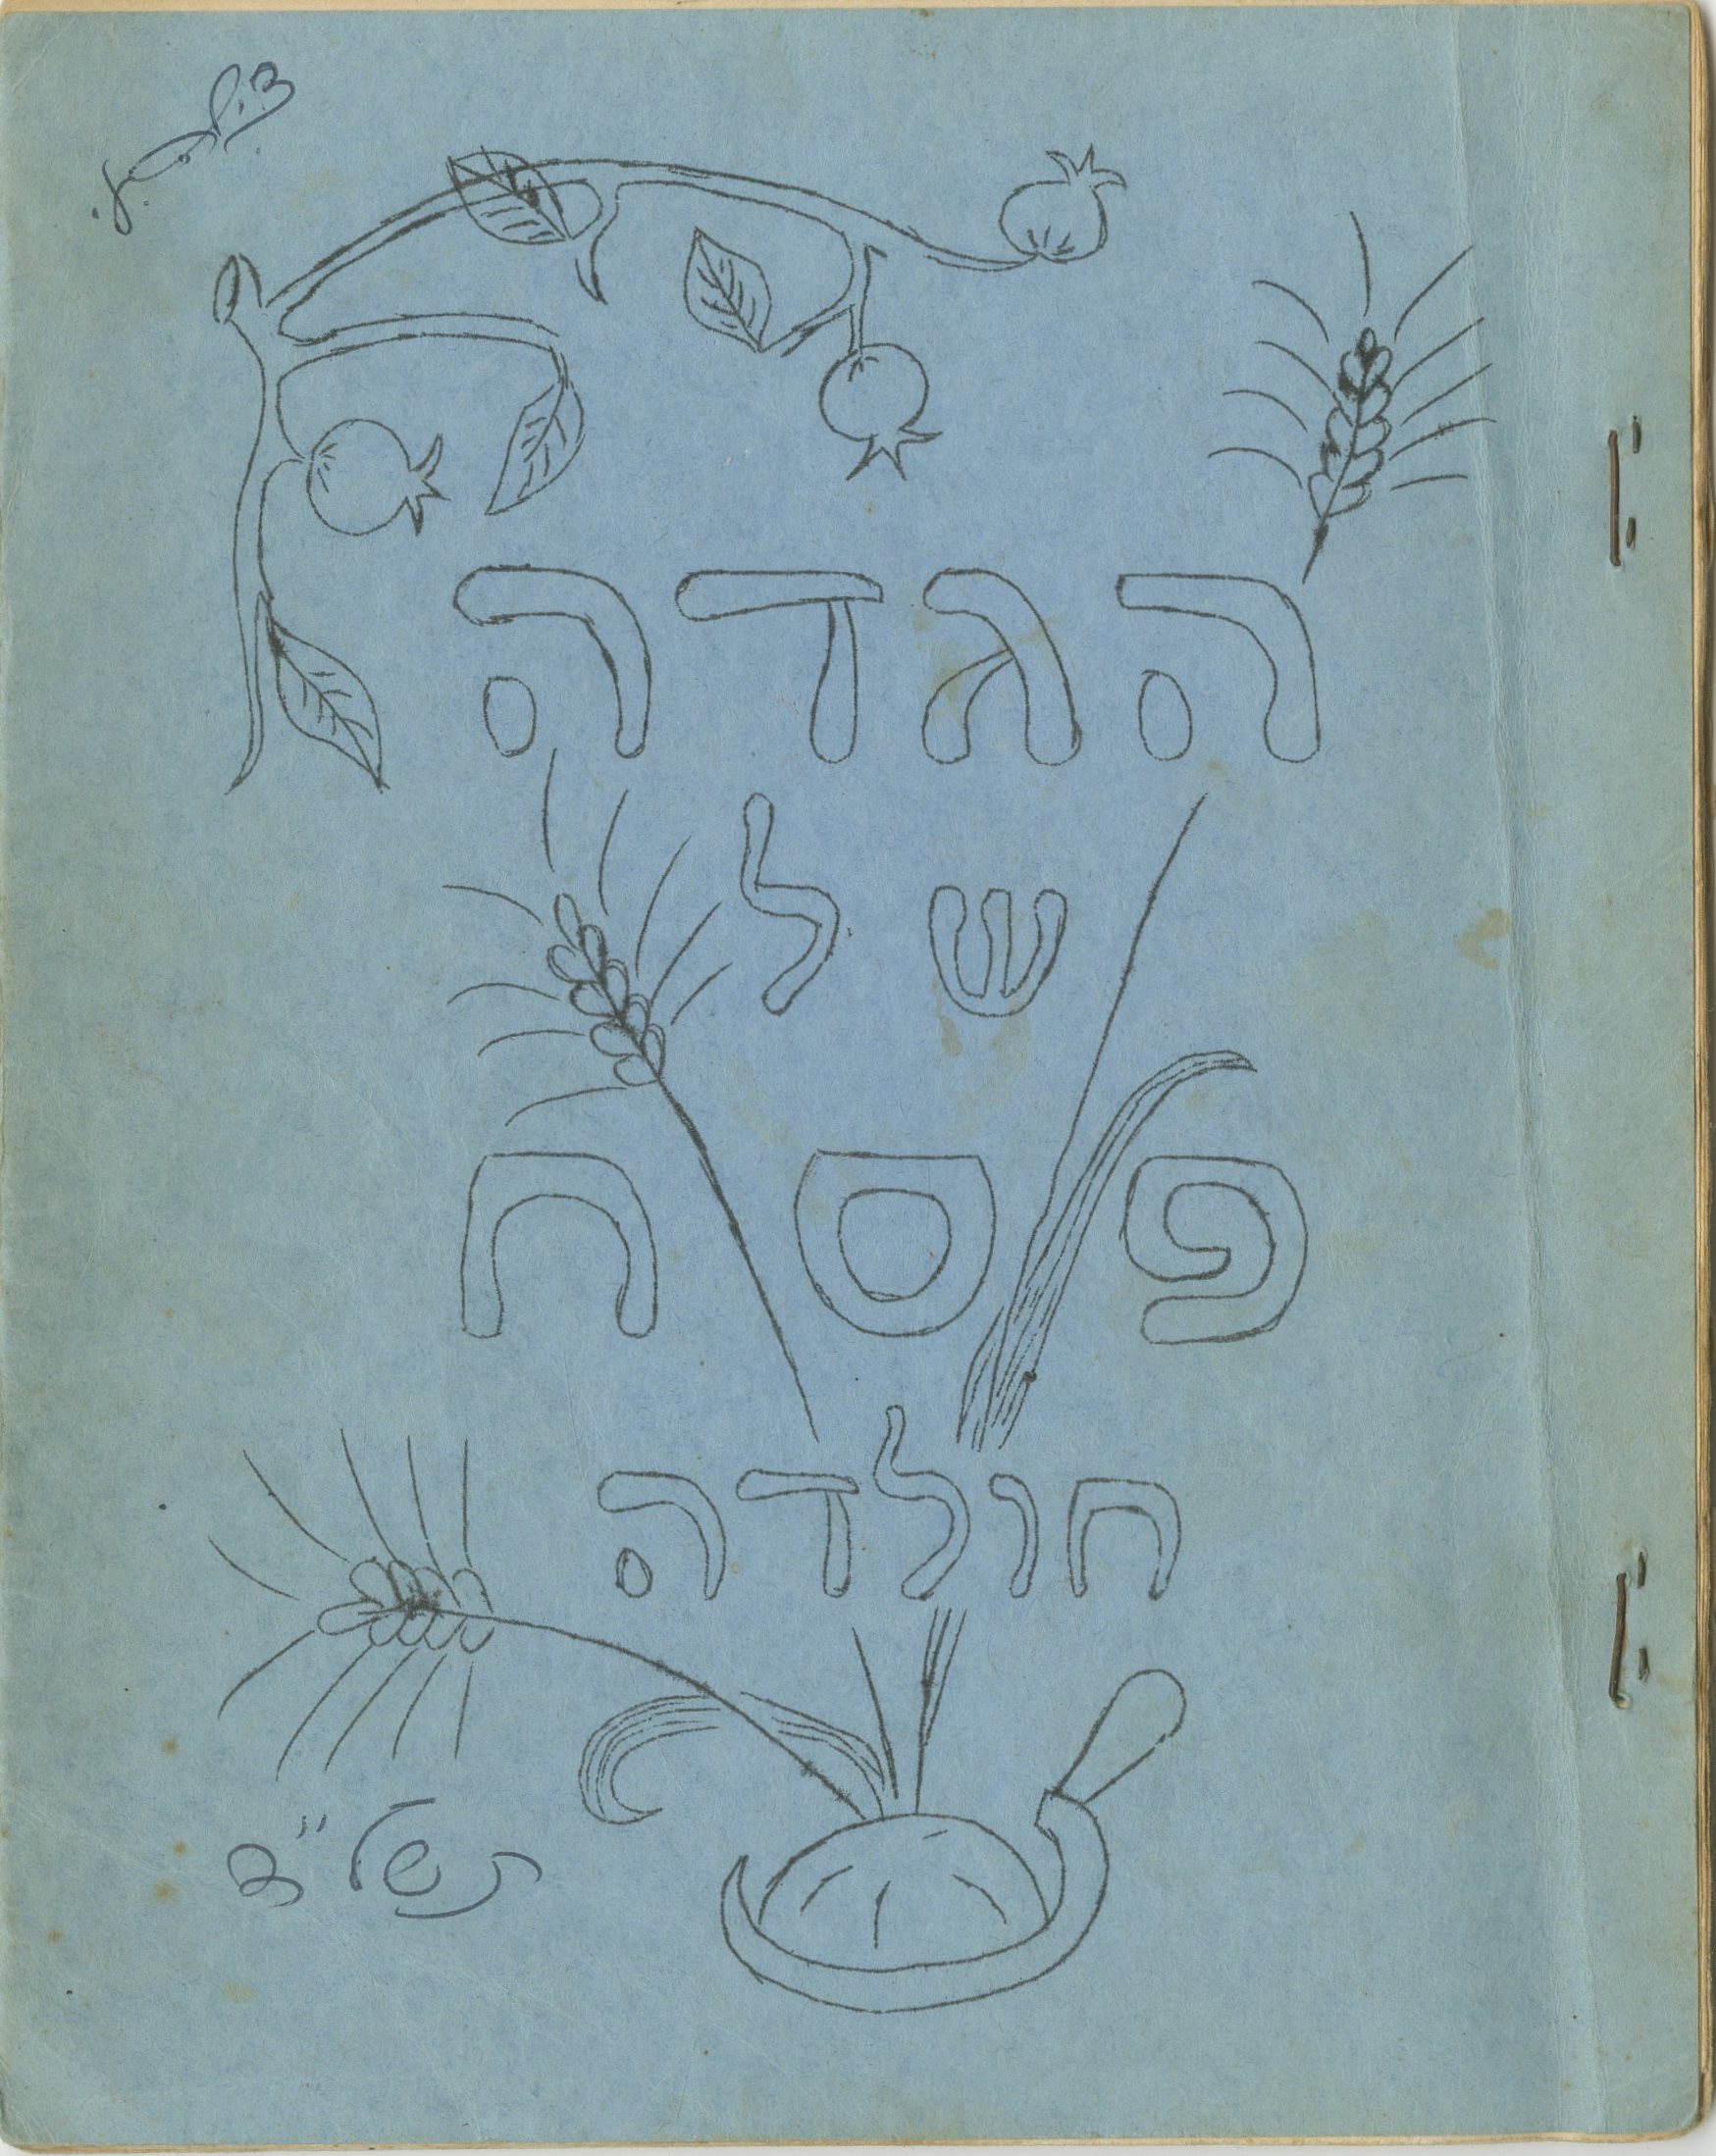 הגדה
של
פסח
חולדה